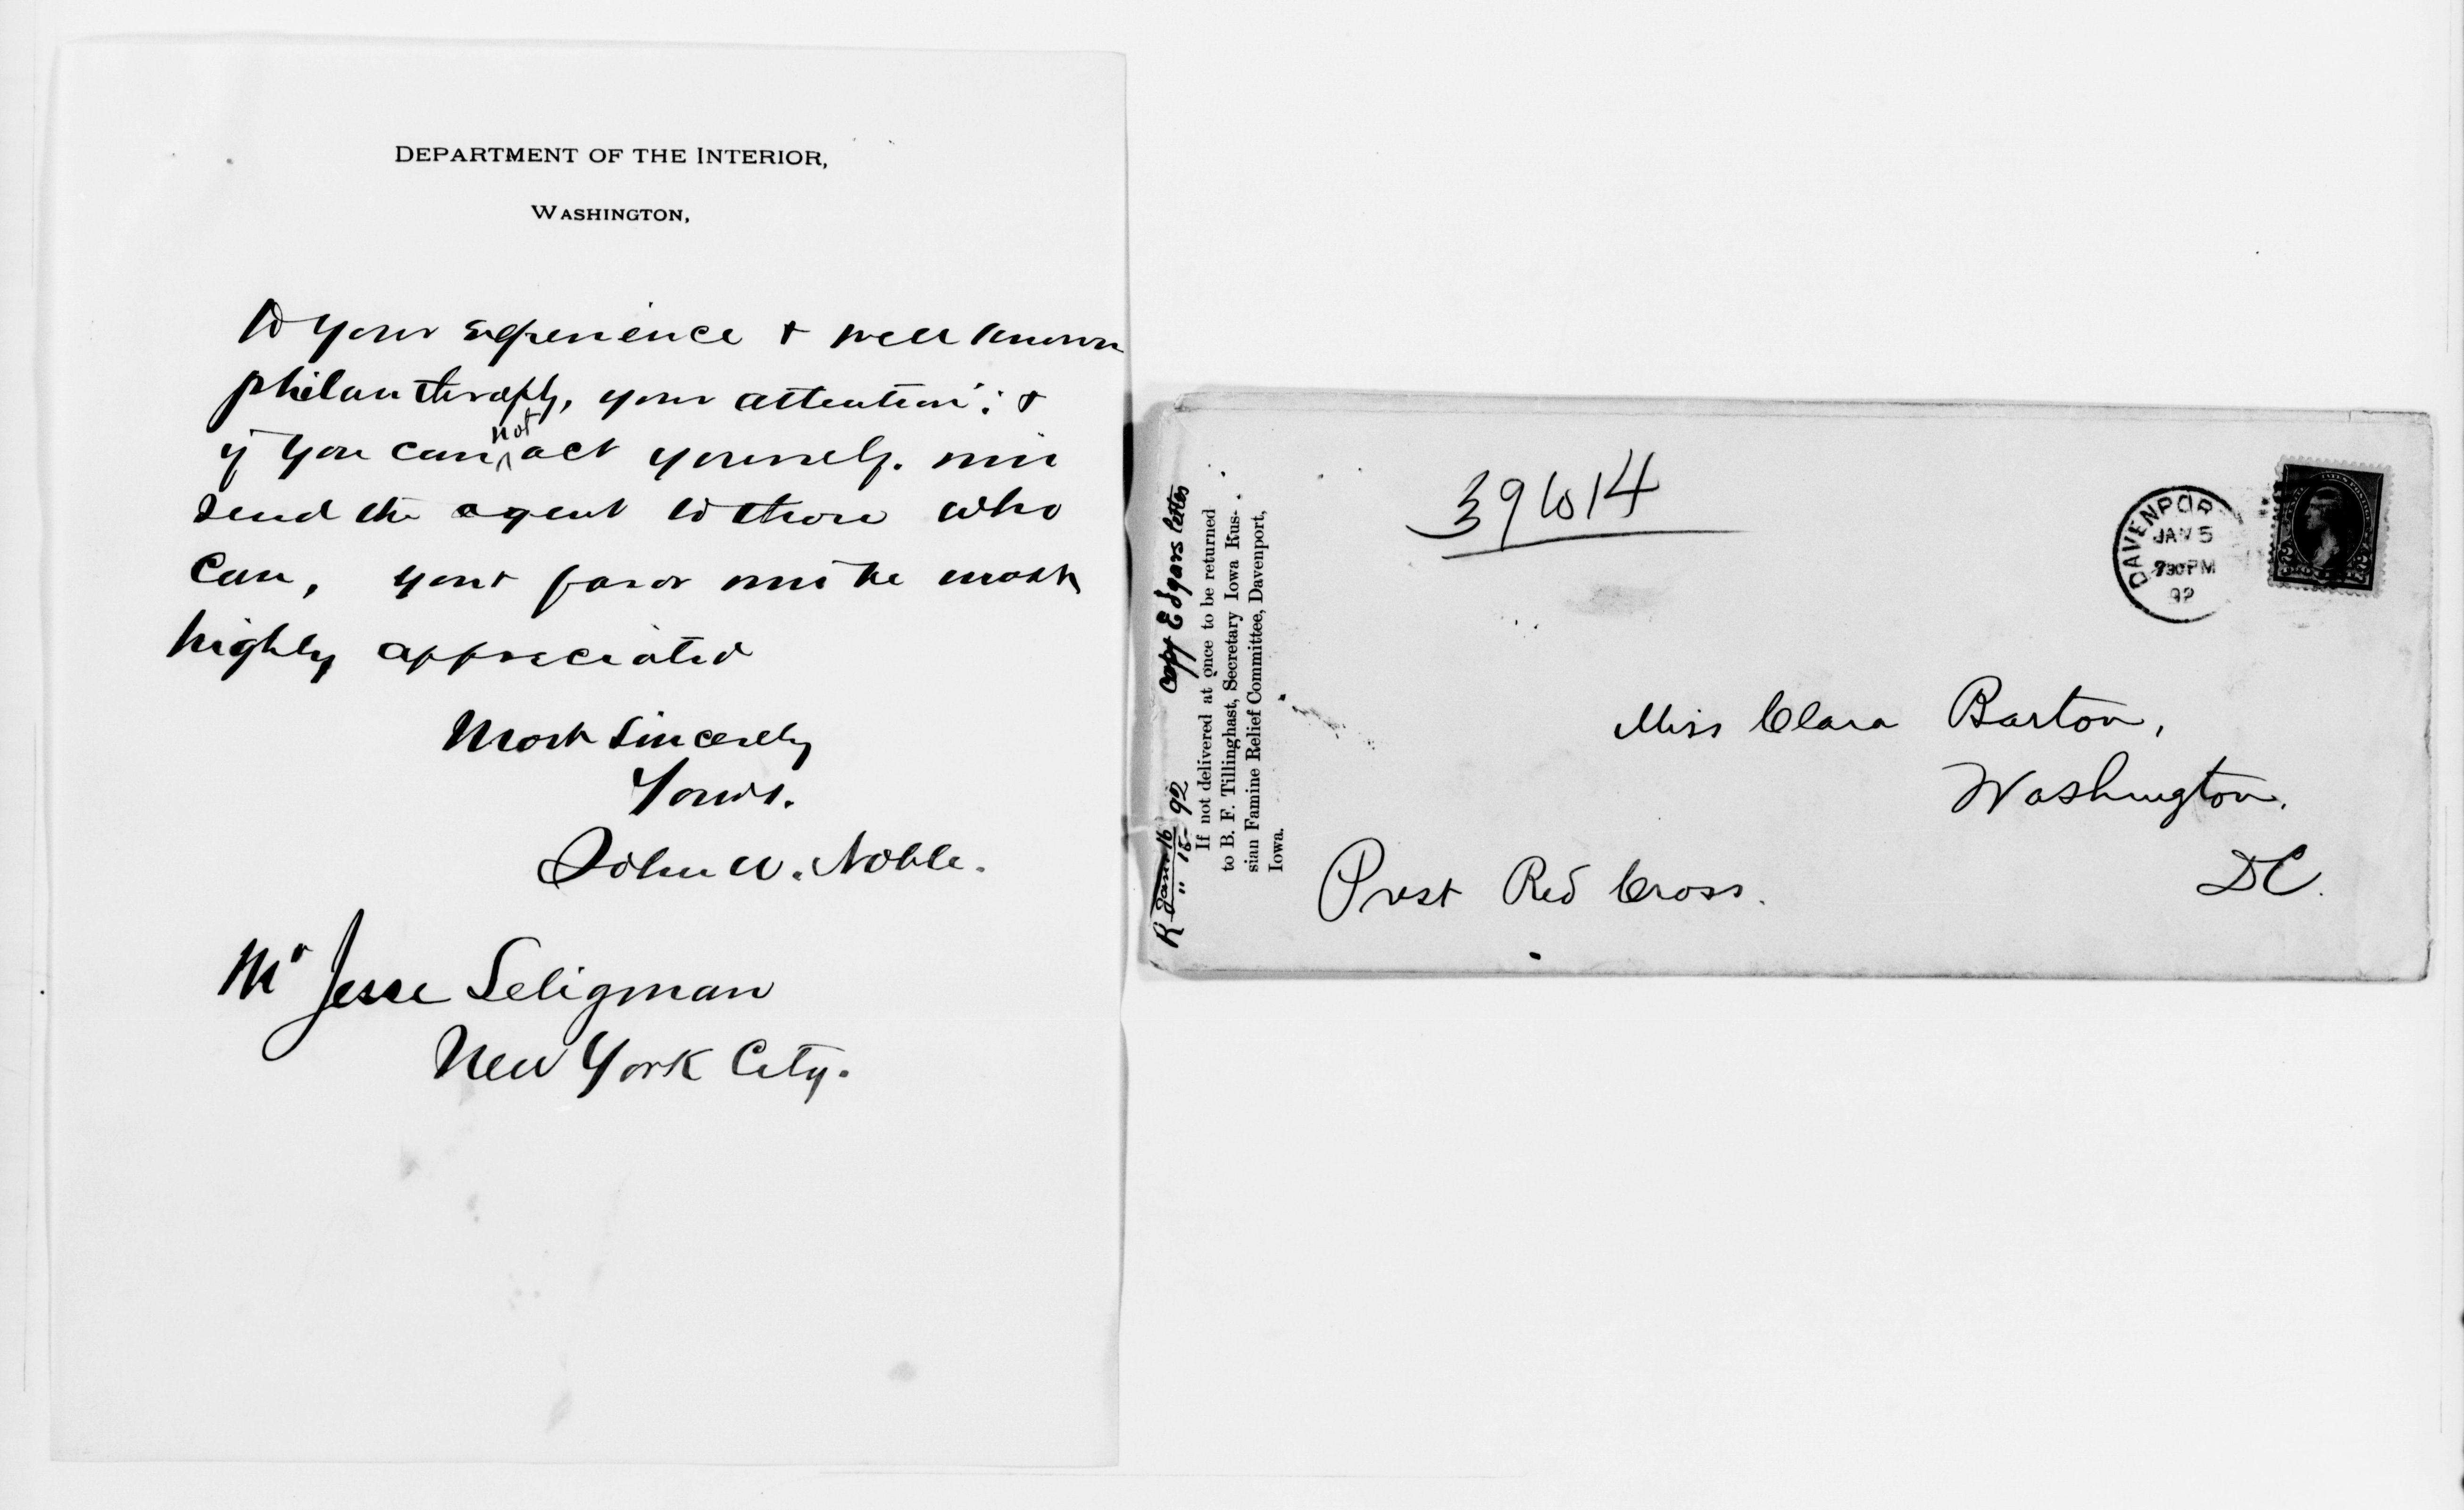 DEPARTMENT OF THE INTERIOR,
WASHINGTON,
to your experience & well known
philanthrophy, your attention; &
if you can not act yourself. will
send the agent to those who
can, your favor will be most
highly appreciated
Most Sincerely
Yours.
John W. Noble.
Mr Jesse Seligman
New York City.
R Jany 16
" 15 92 Copy Edgars letter
If not delivered at once to be returned
to B. F. Tillinghast, Secretary Iowa Rus-
sian Famine Relief Committee, Davenport,
Iowa.
39614
DAVENPOR
JAN 5
730 PM
92
Miss Clara Barton,
Washington,
DC.
Prest Red Cross.